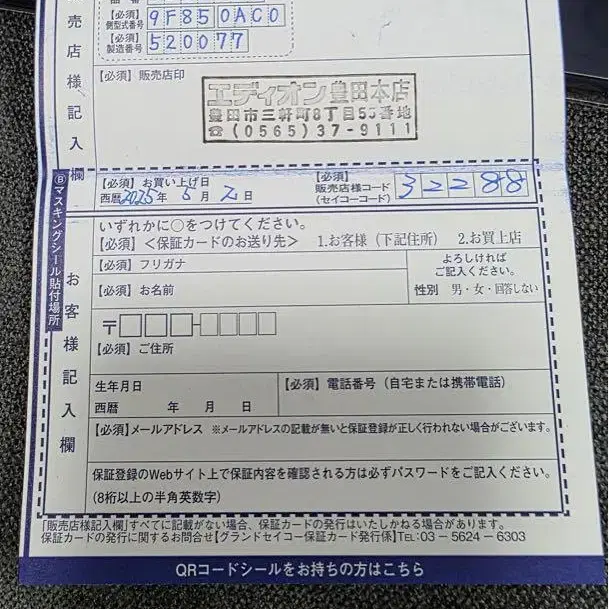 売店様記入欄
【必須】側型式番号 9F850AC0
【必須】製造番号 520077
【必須】販売店印
エディオン豊田本店
豊田市三軒町8丁目55番地
☎(0565)37-9111
【必須】お買い上げ日
西暦2025年 5月 2日
【必須】販売店様コード(セイコーコード) 32288
Ⓑマスキングシール貼付場所
お客様記入欄
いずれかに○をつけてください。
【必須】<保証カードのお送り先> 1.お客様(下記住所) 2.お買上店
【必須】フリガナ
よろしければ
ご記入ください。
【必須】お名前
性別 男・女・回答しない
〒
【必須】ご住所
生年月日
西暦 年 月 日
【必須】電話番号(自宅または携帯電話)
【必須】メールアドレス ※メールアドレスの記載が無いと保証登録が正しく行われない場合がございます。
保証登録のWebサイト上で保証内容を確認される方は必ずパスワードをご記入ください。
(8桁以上の半角英数字)
「販売店様記入欄」すべてに記載がない場合、保証カードの発行はいたしかねる場合があります。
保証カードの発行に関するお問合せ【グランドセイコー保証カード発行係】TEL:03-5624-6303
QRコードシールをお持ちの方はこちら